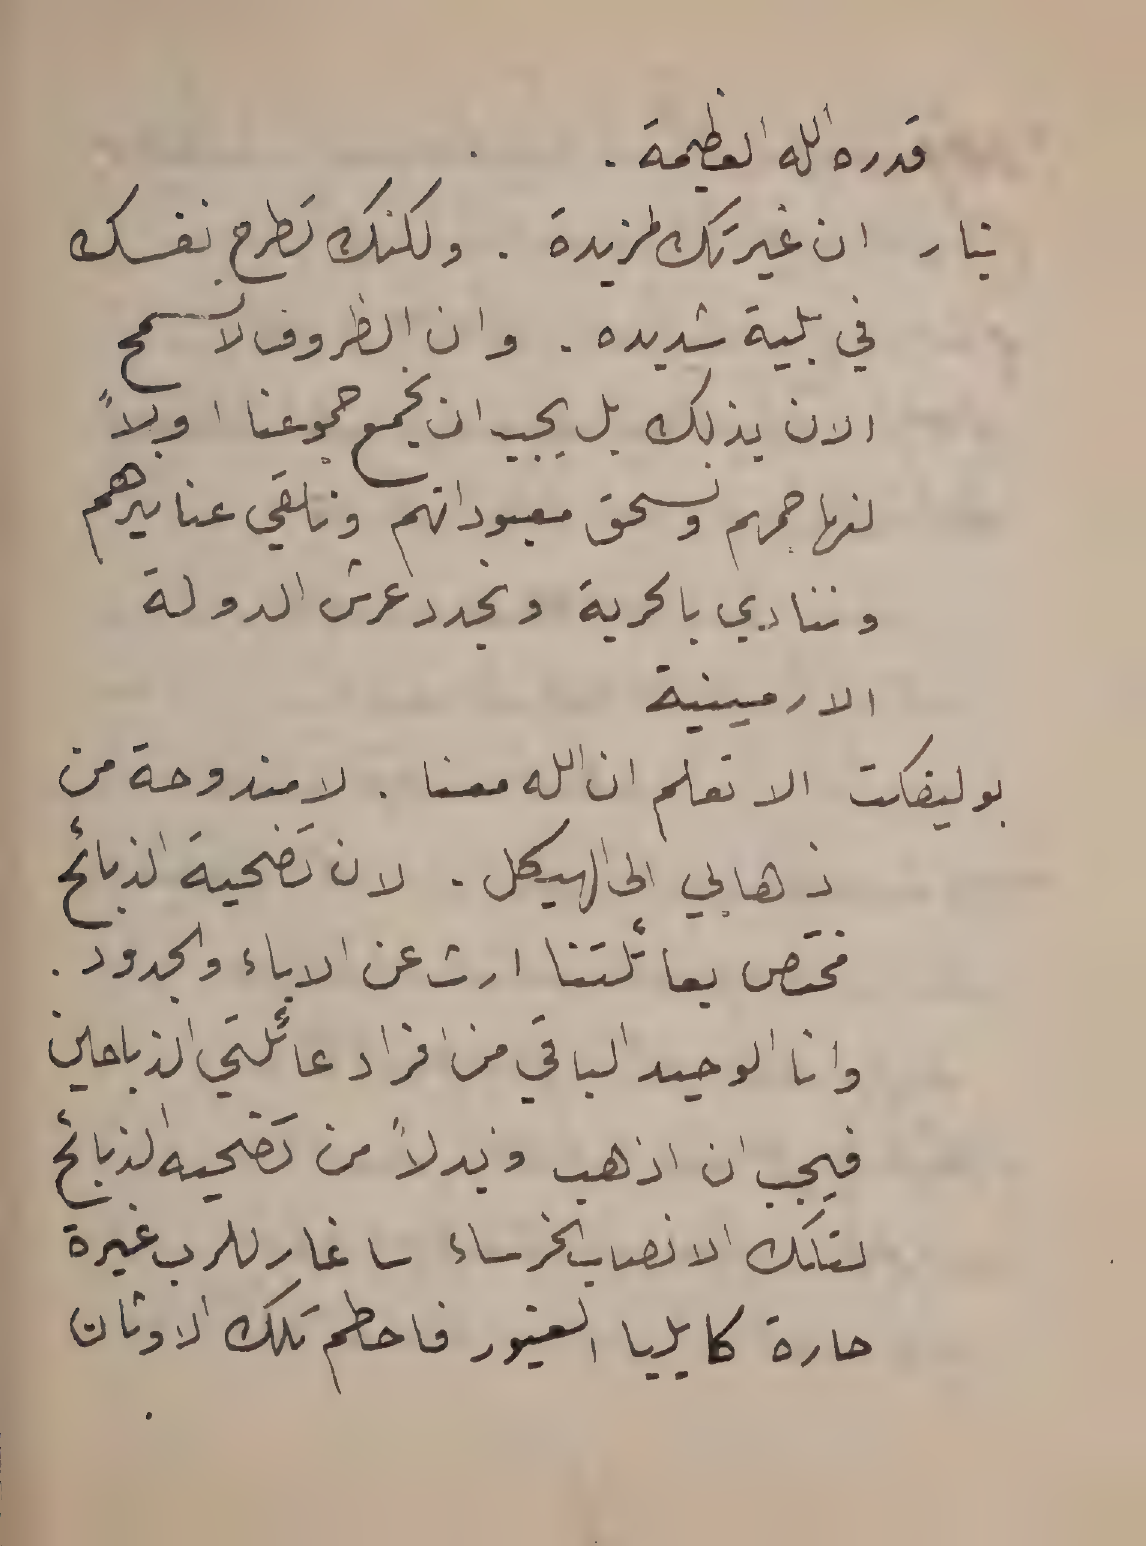 قدره الله العظيمة .
بنار ان غيرتك لمزيدة . ولكنك تطرح نفسك
في بلية شديده . وان الظروف لا تسمح
الان بذلك بل يجب ان نجمع جموعنا اولاً
لنهاجمهم ونسحق معبوداتهم ونلقي عنا نيرهم
وننادي بالحرية ونجدد عرش الدولة
الارمينية
بوليفكت الا تعلم ان الله معنا . لا مندوحة من
ذهابي الى الهيكل . لان تضحية الذبائح
مختص بعائلتنا ارث عن الاباء والجدود .
وانا الوحيد الباقي من افراد عائلتي الذباحين
فيجب ان اذهب وبدلاً من تضحيه الذبائح
لتلك الانصاب الخرساء ساغار للرب غيرة
حارة كايليا الغيور فاحطم تلك الاوثان